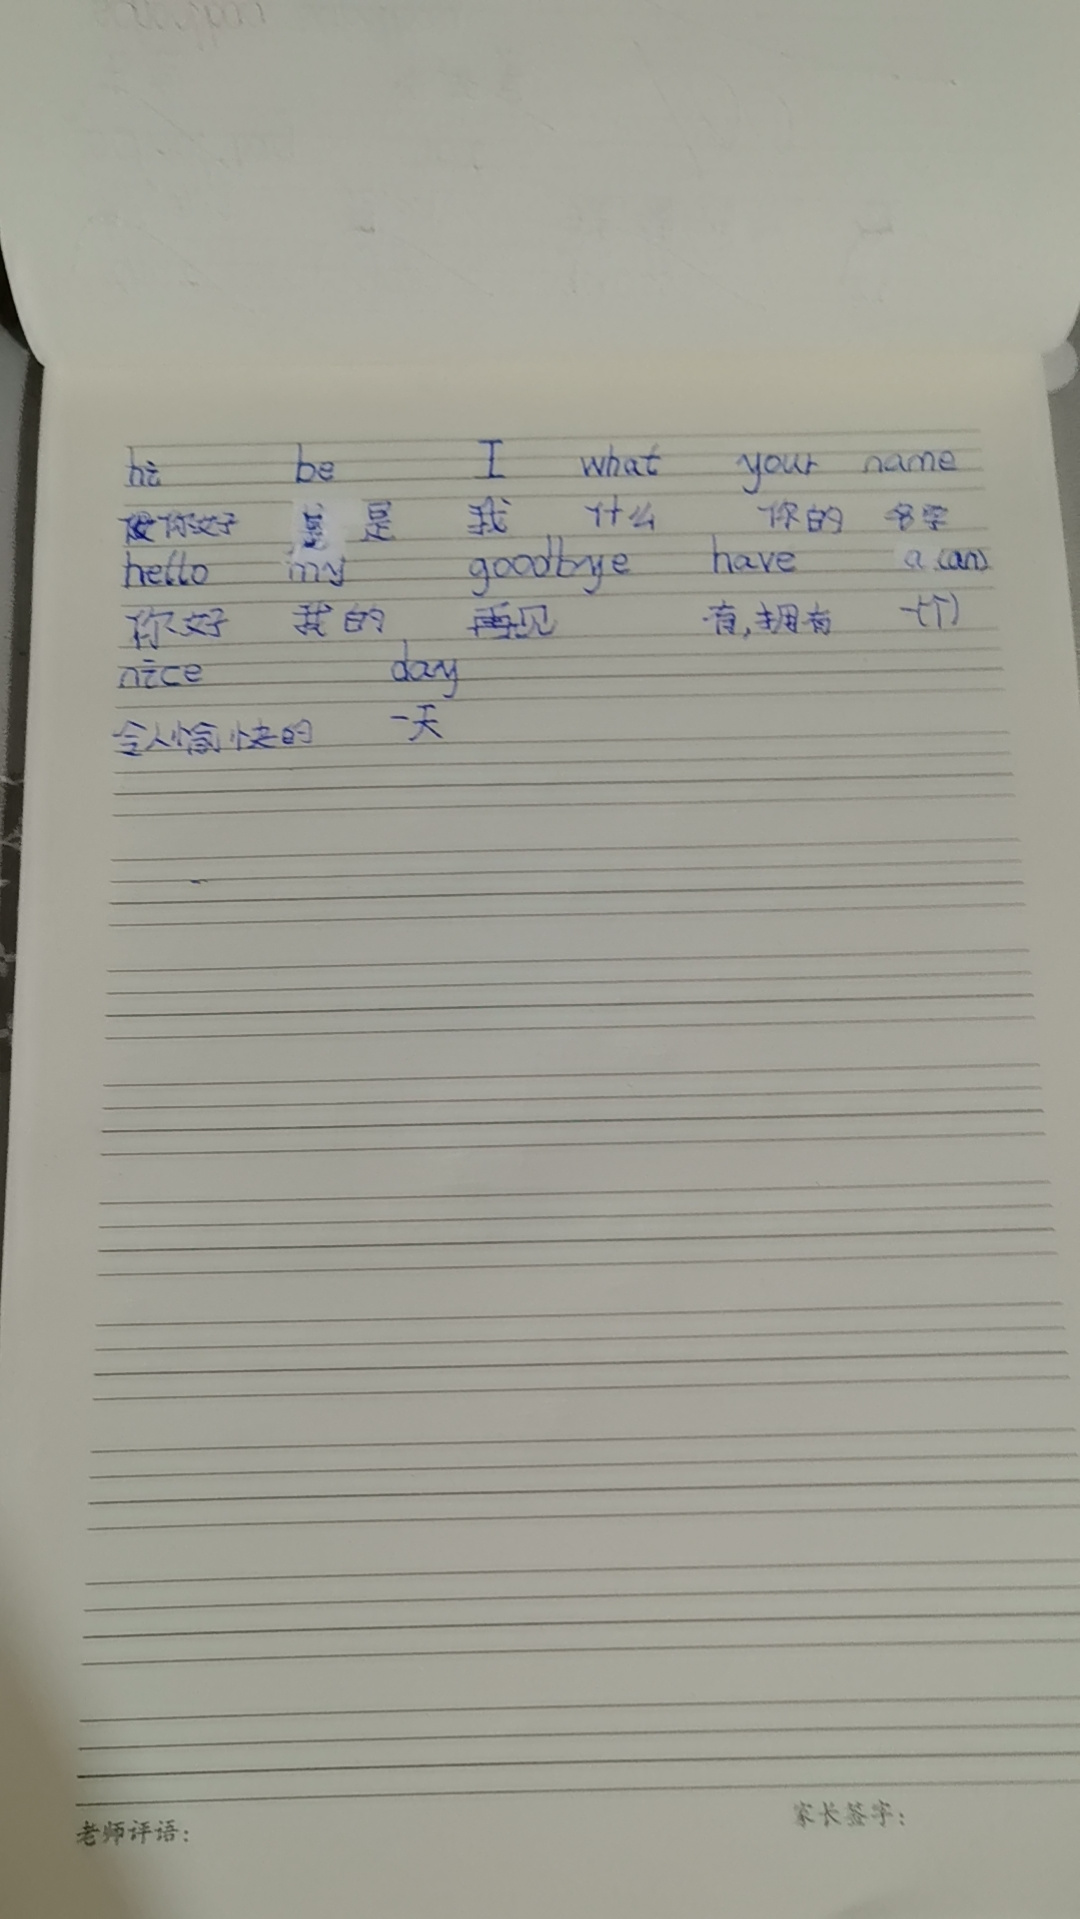 hi be I what your name
你好 是 我 什么 你的 名字
hello my goodbye have a (an)
你好 我的 再见 有,拥有 一(个)
nice day
令人愉快的 一天
老师评语: 家长签字: